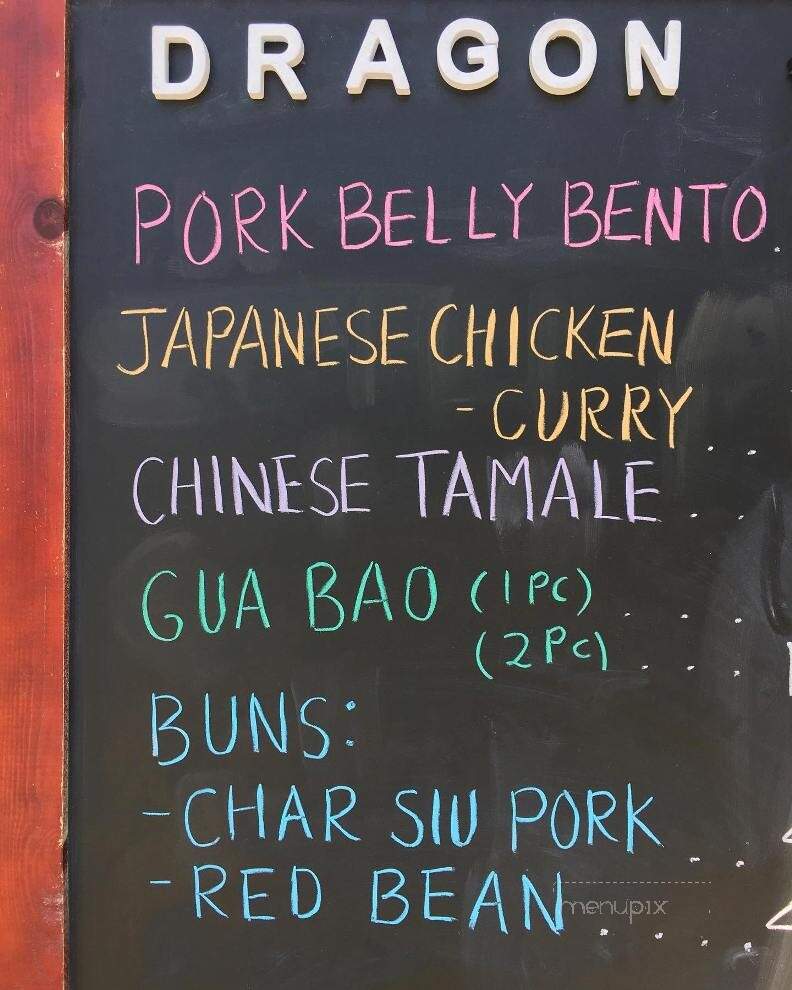 DRAGON
PORK BELLY BENTO.
JAPANESE CHICKEN
-CURRY . .
CHINESE TAMALE . .
GUA BAO (1PC) . . .
(2PC) . . .
BUNS:
-CHAR SIU PORK . .
-RED BEAN . . .
menupix